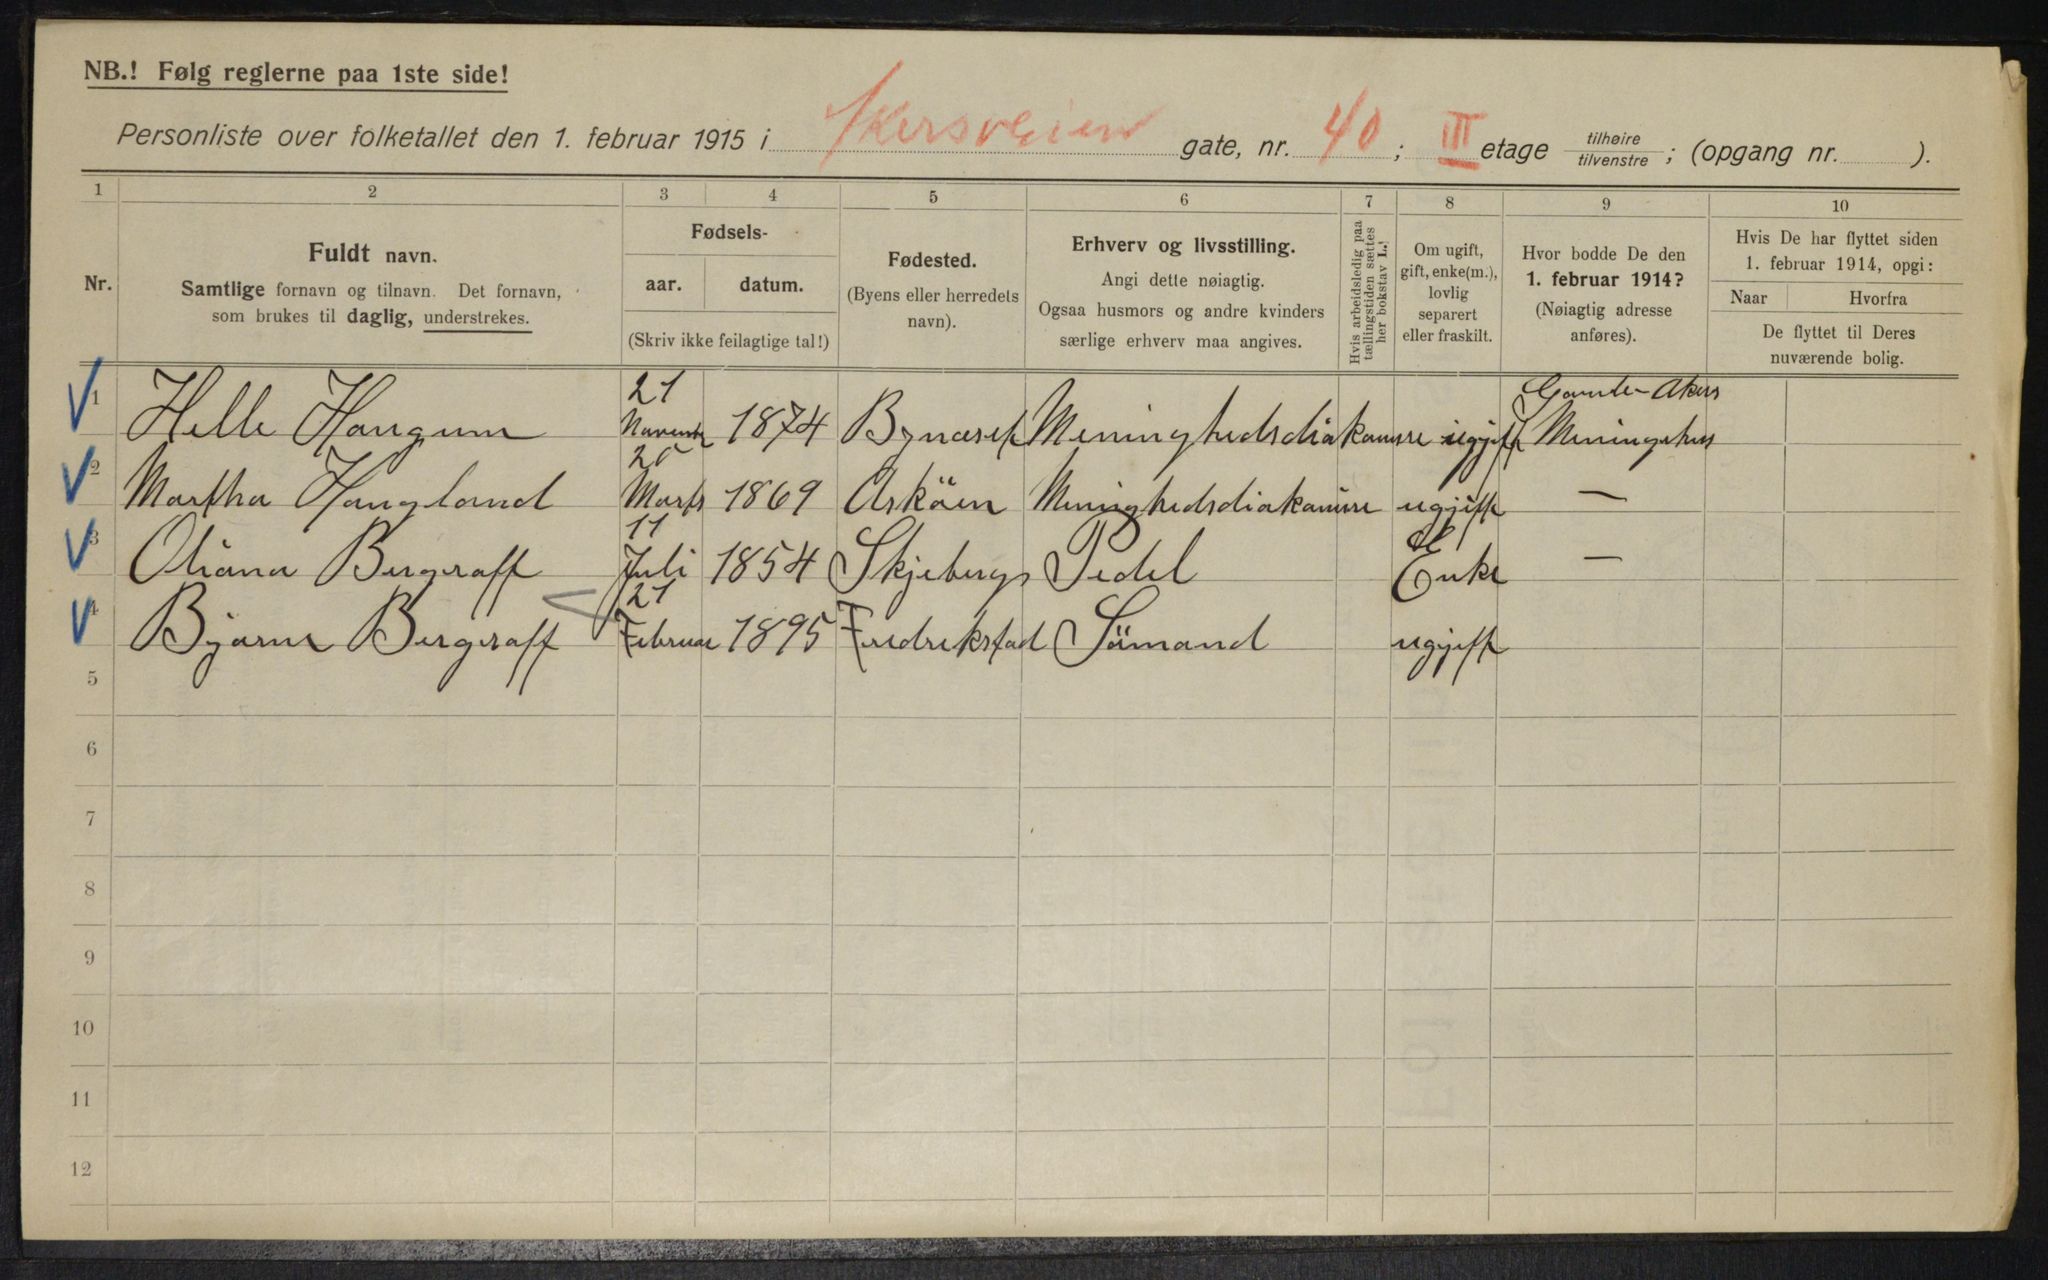 NB.! Følg reglerne paa 1ste side!
Personliste over folketallet den 1. februar 1915 i Akersveien gate, nr. 40; III etage tilhøire / tilvenstre; (opgang nr. ).
1 2 3 4 5 6 7 8 9 10
Nr.
Fuldt navn.
Samtlige fornavn og tilnavn. Det fornavn,
som brukes til daglig, understrekes.
Fødsels-
aar. datum.
(Skriv ikke feilagtige tal!)
Fødested.
(Byens eller herredets
navn).
Erhverv og livsstilling.
Angi dette nøiagtig.
Ogsaa husmors og andre kvinders
særlige erhverv maa angives.
Hvis arbeidsledig paa
tællingstiden sættes
her bokstav L.!
Om ugift,
gift, enke(m.),
lovlig
separert
eller fraskilt.
Hvor bodde De den
1. februar 1914?
(Nøiagtig adresse
anføres).
Hvis De har flyttet siden
1. februar 1914, opgi:
Naar Hvorfra
De flyttet til Deres
nuværende bolig.
1 Helle Haugum 21 1874 Bynæset Meninghedsdiakonisse ugjift Gamle-Akers
Martha Haugland Marts 1869 Asköen Menighedsdiakonisse ugjift —
3 Oliana Bergraff 11 Juli 1854 Skjebergs Pedel Enke —
4 Bjarne Bergraff 21 Februar 1895 Fredrikstad Sömand ugjift
5
6
7
8
9
10
11
12